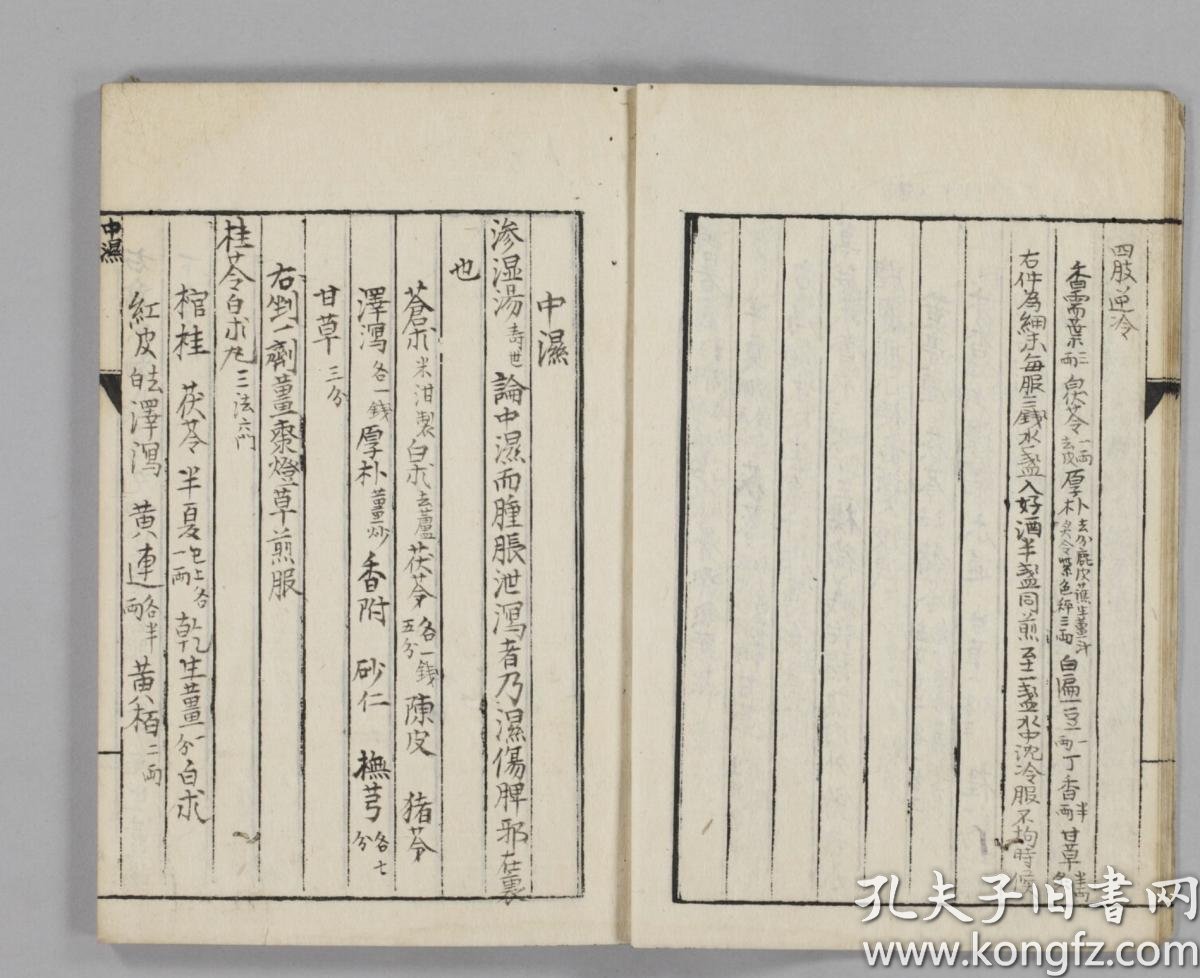 四肢逆冷
香需葉三兩 白茯苓一兩去皮 厚朴 白匾豆一兩 丁香半兩 甘草
右件為細末每服三錢水一盞入好酒半盞同煎至一盞水中沈冷服不拘時候
中濕
渗湿湯壽世 論中濕而腫脹泄瀉者乃濕傷脾邪在裏
也
蒼朮米泔製 白朮去蘆 茯苓各一錢五分 陳皮 猪苓
澤瀉各一錢 厚朴薑炒 香附 砂仁 橅芎各七分
甘草三分
右剉一劑薑棗燈草煎服
桂苓白朮丸三法六門
棺桂 茯苓 半夏已上各一兩 乾生薑一分 白朮
紅皮去白 澤瀉 黃連各半兩 黃栢二兩
中濕
孔夫子旧书网
www.kongfz.com